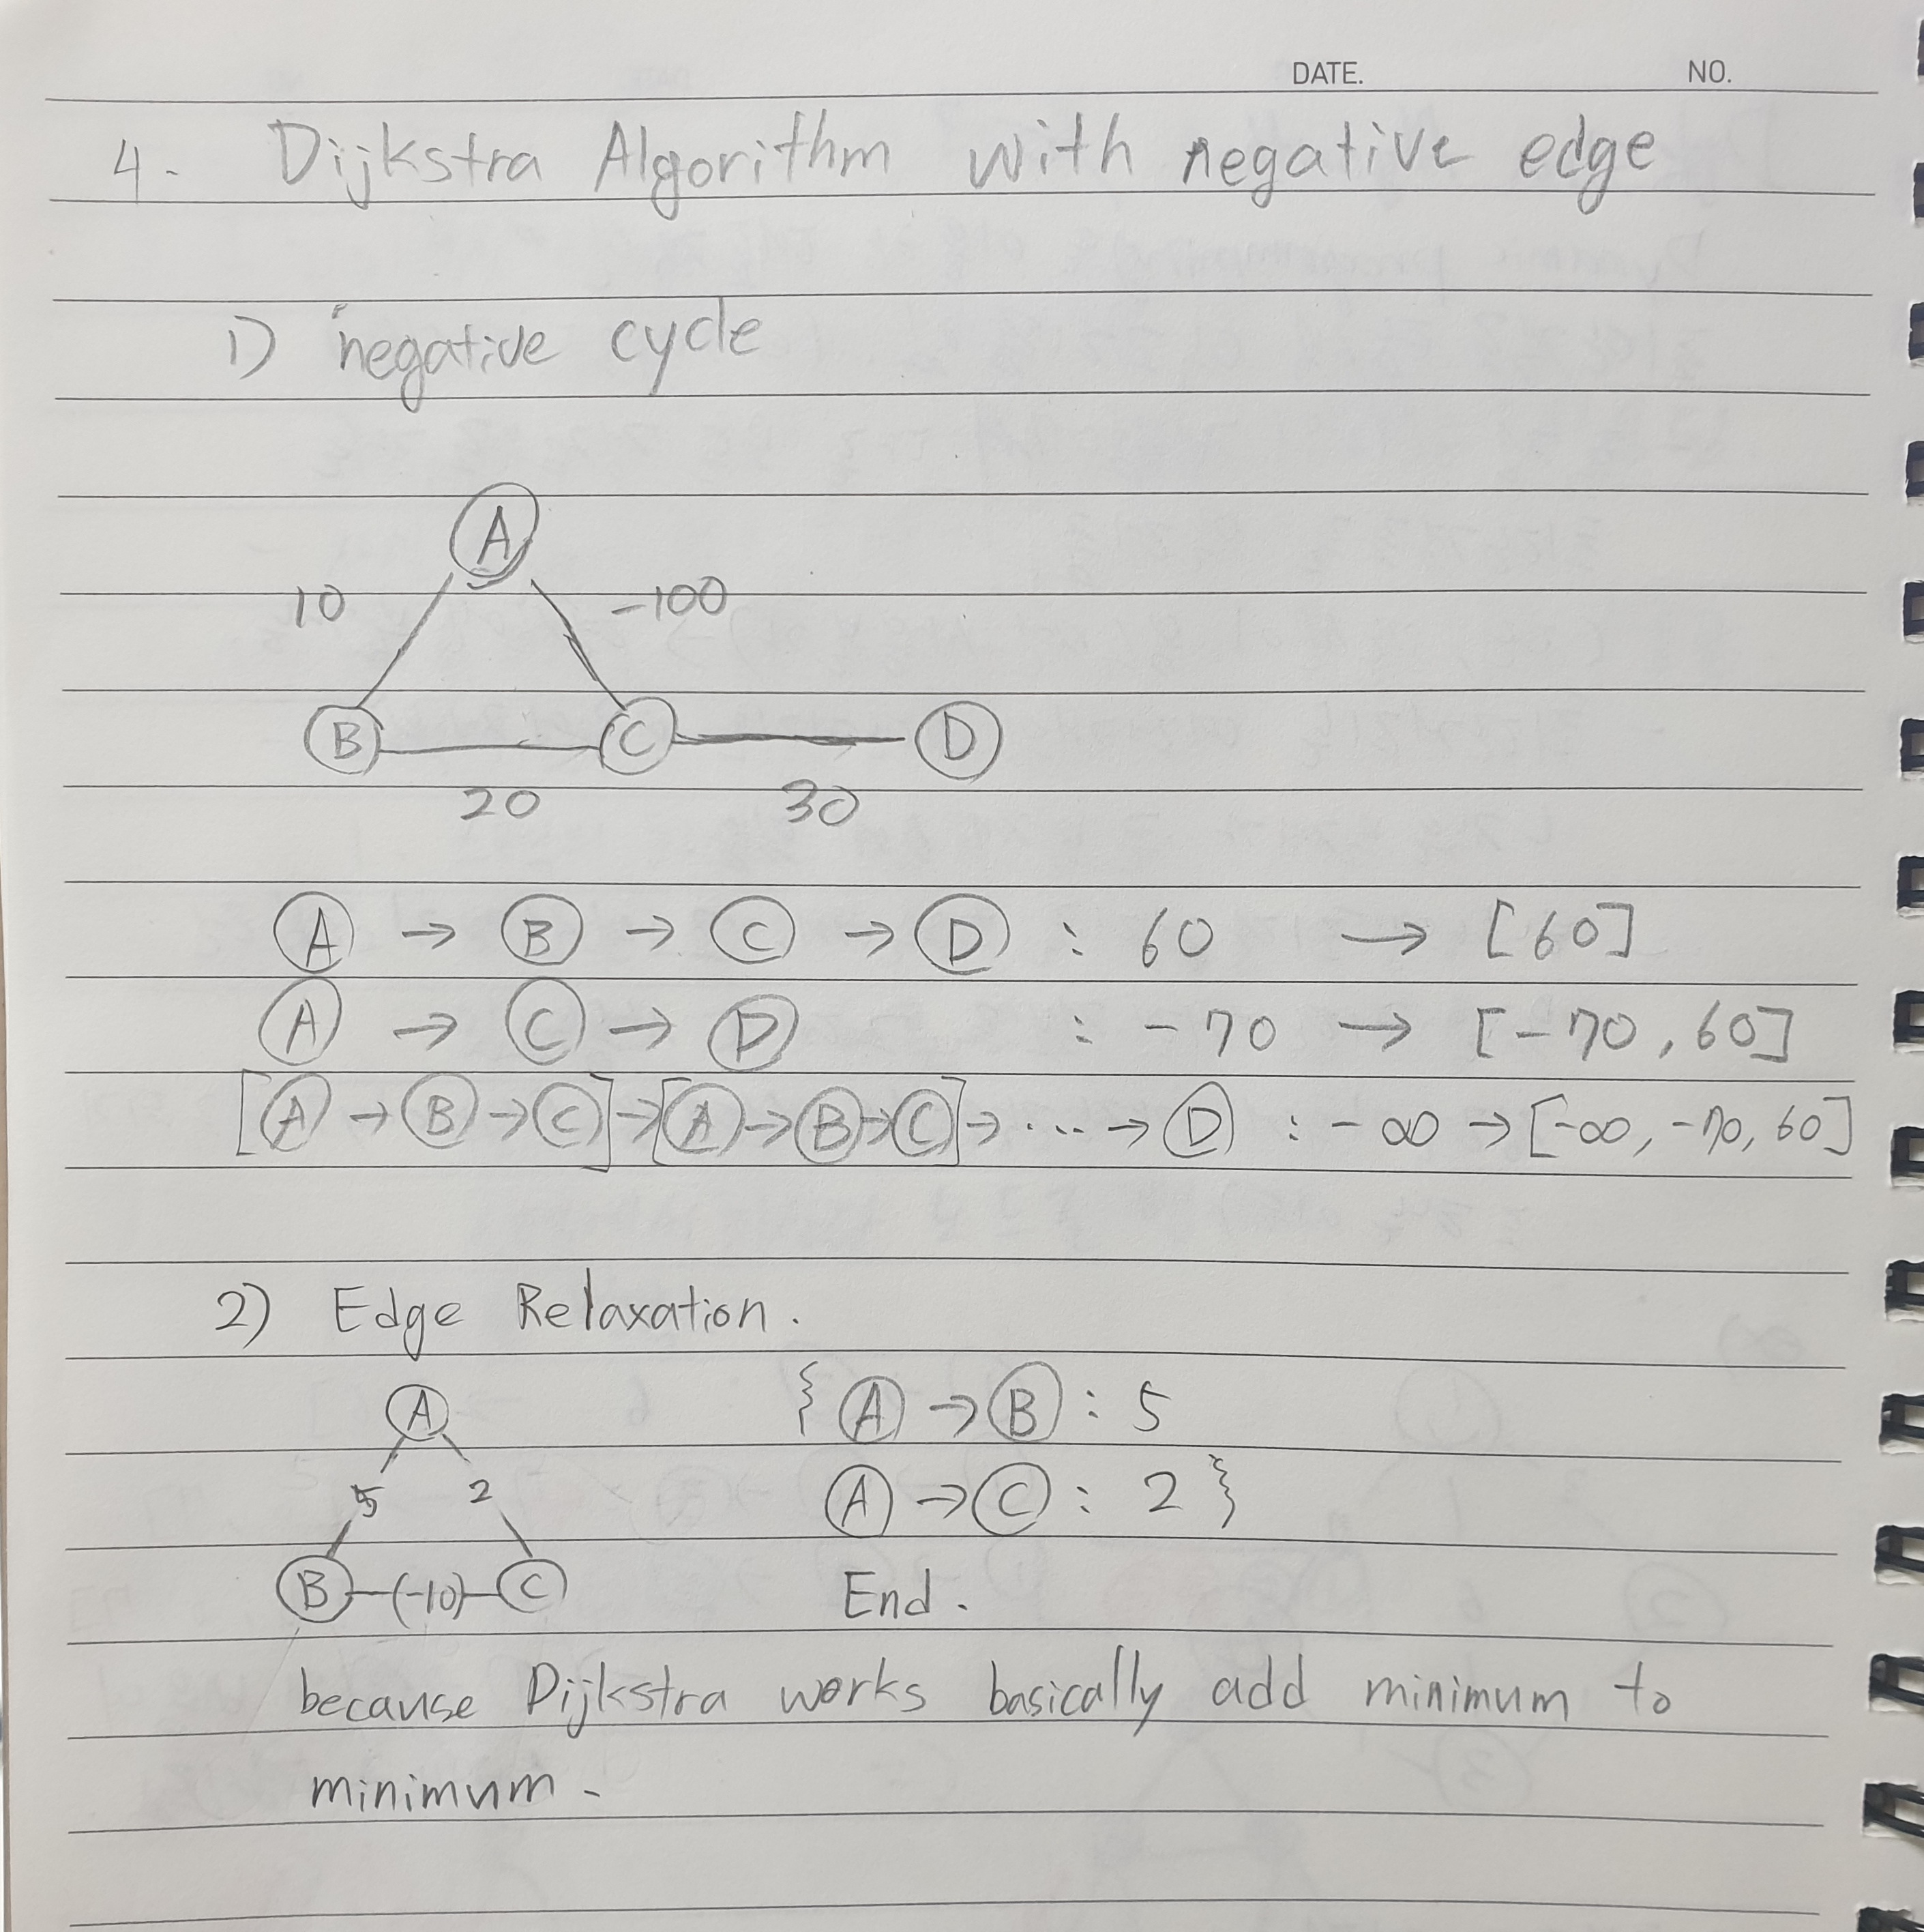 DATE. NO.
4. Dijkstra Algorithm with negative edge
1) negative cycle
A
10 -100
B C D
20 30
A → B → C → D : 60 → [60]
A → C → D : -70 → [-70, 60]
[A → B → C] → [A → B → C] → ... → D : -∞ → [-∞, -70, 60]
2) Edge Relaxation.
A { A → B : 5
5 2 A → C : 2 }
B (-10) C End.
because Dijkstra works basically add minimum to
minimum.